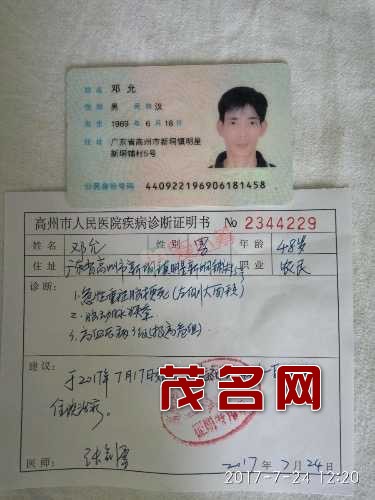 姓名 邓允
性别 男 民族 汉
出生 1969 年 6 月 18 日
住址 广东省高州市新垌镇明星
新垌铺村5号
公民身份号码 440922196906181458
高州市人民医院疾病诊断证明书 No 2344229
姓名 邓允 性别 男 年龄 48岁
住址 广东省高州市新垌镇明星新垌铺村 职业 农民
诊断:
1.急性重症脑梗死(左侧大面积)
2.脑动脉狭窄
3.高血压病3级(极高危组)
建议: 于2017年7月17日
住院治疗。
茂名网
医师 2017年7月24日
2017-7-24 12:20